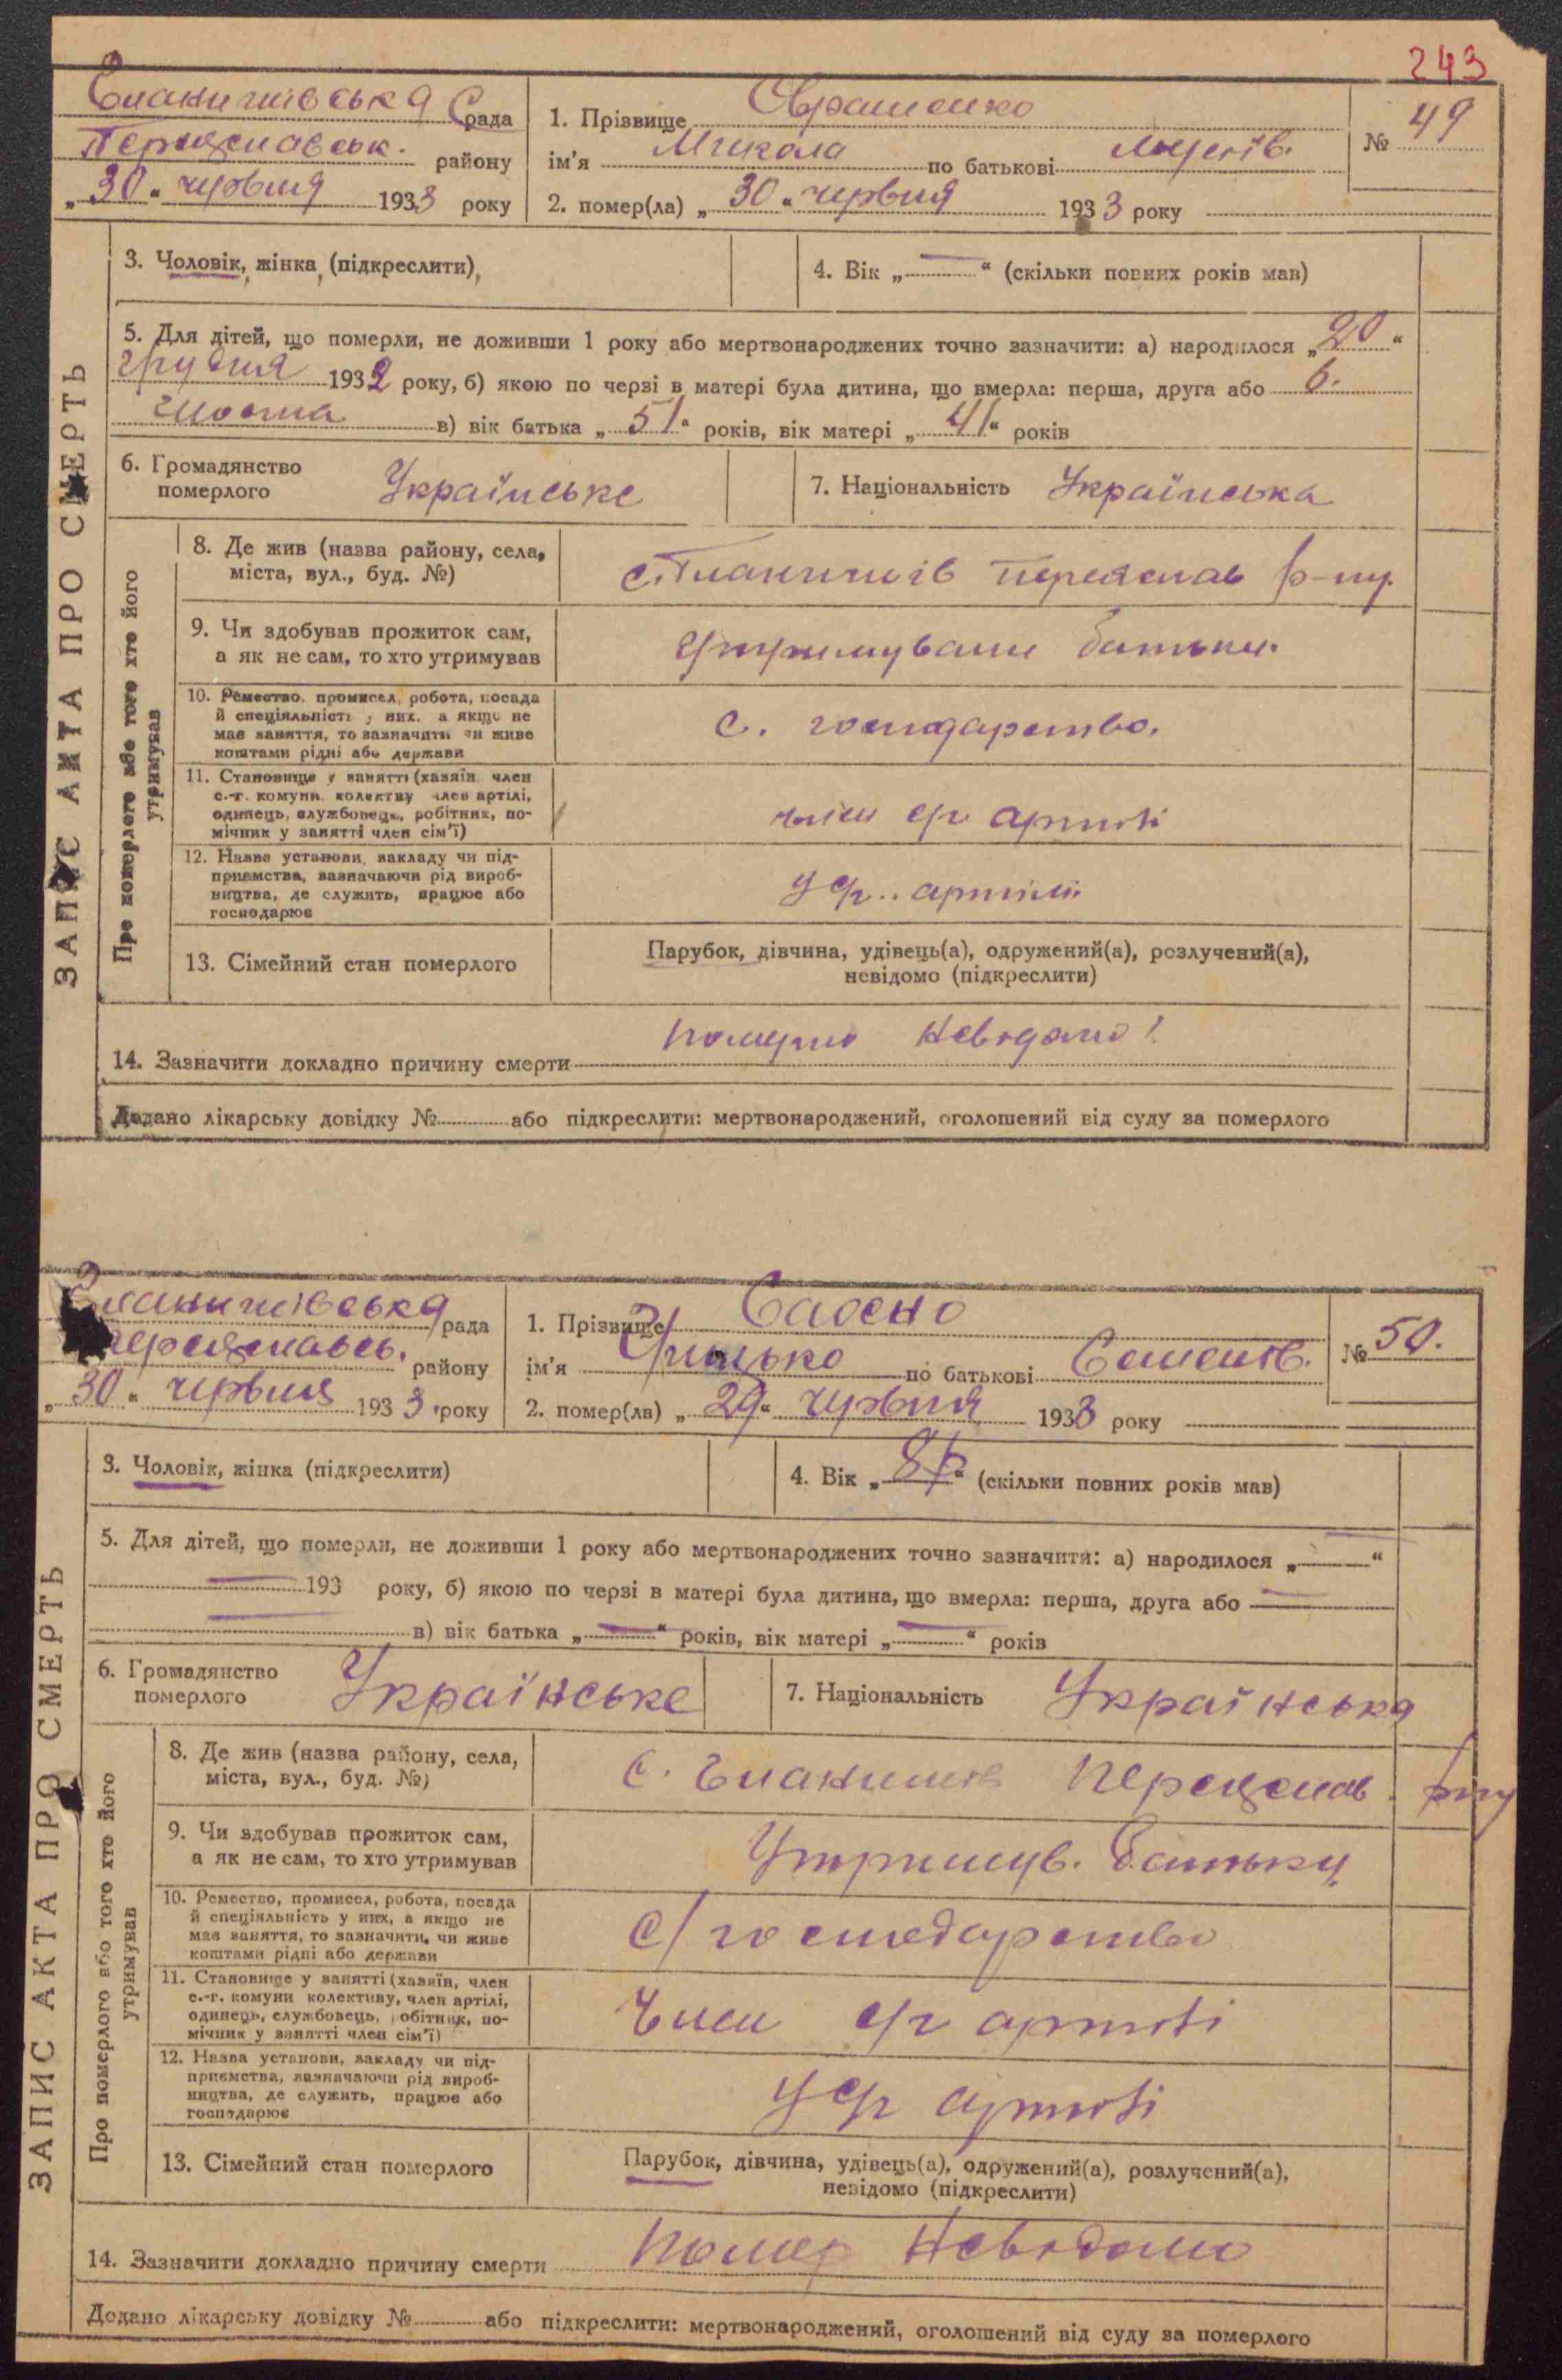 243
рада
1. Прізвище
№ 49
району
ім'я Микола по батькові
„30“ червня 1933 року
2. помер(ла) „30“ червня 1933 року
3. Чоловік, жінка, (підкреслити),
4. Вік „—“ (скільки повних років мав)
5. Для дітей, що померли, не доживши 1 року або мертвонароджених точно зазначити: а) народилося „20“
грудня 1932 року, б) якою по черзі в матері була дитина, що вмерла: перша, друга або 6.
шоста в) вік батька „51“ років, вік матері „41“ років
6. Громадянство
померлого
Українське
7. Національність Українська
ЗАПИС АКТА ПРО СМЕРТЬ
Про померлого або того хто його
утримував
8. Де жив (назва району, села,
міста, вул., буд. №)
с. Переяслав р-ну.
9. Чи здобував прожиток сам,
а як не сам, то хто утримував
Утримували батьки.
10. Ремество, промисел, робота, посада
й спеціяльність у них, а якщо не
має заняття, то зазначити чи живе
коштами рідні або держави
с. господарство.
11. Становище у занятті (хазяїн, член
с.-г. комуни, колективу, член артілі,
одинець, службовець, робітник, по-
мічник у занятті член сім'ї)
член с/г артілі
12. Назва установи, закладу чи під-
приємства, зазначаючи рід вироб-
ництва, де служить, працює або
господарює
у с/г.. артілі
13. Сімейний стан померлого
Парубок, дівчина, удівець(а), одружений(а), розлучений(а),
невідомо (підкреслити)
14. Зазначити докладно причину смерти невідомо
Додано лікарську довідку № або підкреслити: мертвонароджений, оголошений від суду за померлого
рада
1. Прізвище
№ 50.
району
ім'я Грицько по батькові Семенів.
„30“ червня 1933 року
2. помер(ла) „29“ червня 1933 року
3. Чоловік, жінка (підкреслити)
4. Вік „ “ (скільки повних років мав)
5. Для дітей, що померли, не доживши 1 року або мертвонароджених точно зазначити: а) народилося „—“
— 193 року, б) якою по черзі в матері була дитина, що вмерла: перша, друга або —
— в) вік батька „—“ років, вік матері „—“ років
6. Громадянство
померлого
Українське
7. Національність Українська
ЗАПИС АКТА ПРО СМЕРТЬ
Про померлого або того хто його
утримував
8. Де жив (назва району, села,
міста, вул., буд. №)
с. Переяслав. р-ну
9. Чи здобував прожиток сам,
а як не сам, то хто утримував
Утримув. батьки
10. Ремество, промисел, робота, посада
й спеціяльність у них, а якщо не
має заняття, то зазначити, чи живе
коштами рідні або держави
с/господарство
11. Становище у занятті (хазяїн, член
с.-г. комуни колективу, член артілі,
одинець, службовець, робітник, по-
мічник у занятті член сім'ї)
Член с/г артілі
12. Назва установи, закладу чи під-
приємства, зазначаючи рід вироб-
ництва, де служить, працює або
господарює
у с/г артілі
13. Сімейний стан померлого
Парубок, дівчина, удівець(а), одружений(а), розлучений(а),
невідомо (підкреслити)
14. Зазначити докладно причину смерти помер невідомо
Додано лікарську довідку № або підкреслити: мертвонароджений, оголошений від суду за померлого